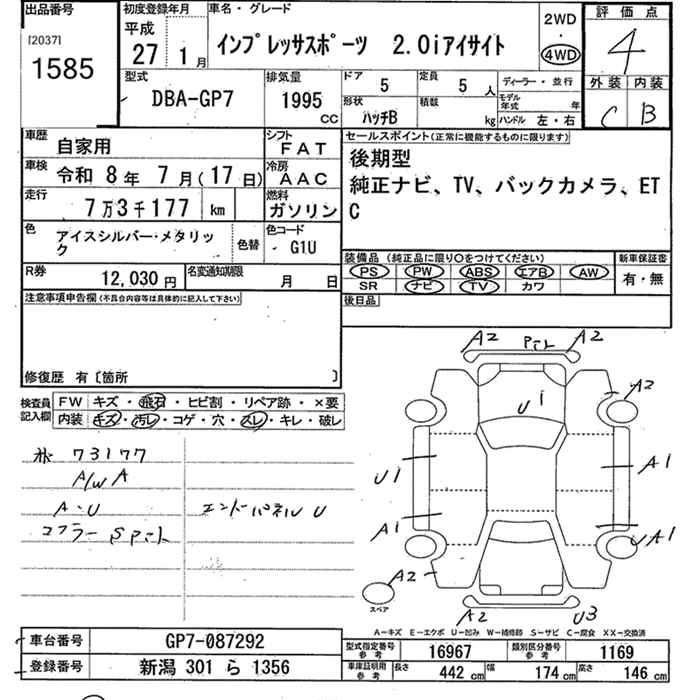 出品番号
[2037]
1585
初度登録年月
平成
27 1月
車名・グレード
インプレッサスポーツ 2.0iアイサイト
2WD
・
4WD
評価点
4
外装 内装
C B
型式
DBA-GP7
排気量
1995
CC
ドア
5
定員
5人
ディーラー・並行
形状
ハッチB
積数
kg
モデル年式 年
ハンドル 左・右
車歴
自家用
シフト
FAT
車検
令和 8年 7月(17日)
冷房
AAC
走行
7万3千177 km
燃料
ガソリン
色
アイスシルバー・メタリック
色替
色コード
G1U
R券
12,030円
名変通知期限
月 日
セールスポイント(正常に機能するものに限ります)
後期型
純正ナビ、TV、バックカメラ、ET
C
装備品(純正品に限り○をつけてください)
PS PW ABS エアB AW
SR ナビ TV カワ
新車保証書
有・無
後日品
注意事項申告欄(不具合内容等は具体的に記入して下さい)
修復歴 有〔箇所 〕
検査員記入欄
FW キズ・飛石・ヒビ割・リペア跡・×要
内装 キズ・汚レ・コゲ・穴・スレ・キレ・破レ
73177
A/W A
A・U
マフラー Sアト
エンドパネル U
A2 A2
A2
U i
U1
A1
A1
UA1
A2
スペア
A2 U3
A-キズ E-エクボ U-凹み W-補修跡 S-サビ C-腐食 XX-交換済
車台番号
GP7-087292
登録番号
新潟 301 ら 1356
型式指定番号
参考
16967
類別区分番号
参考
1169
車庫証明用
参考
長さ 442 cm 幅 174 cm 高さ 146 cm